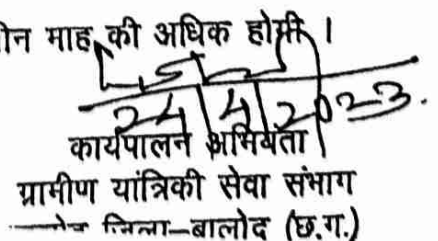 ीन माह की अधिक होगी ।
24/4/2023.
कार्यपालन अभियंता
ग्रामीण यांत्रिकी सेवा संभाग
जिला-बालोद (छ.ग.)